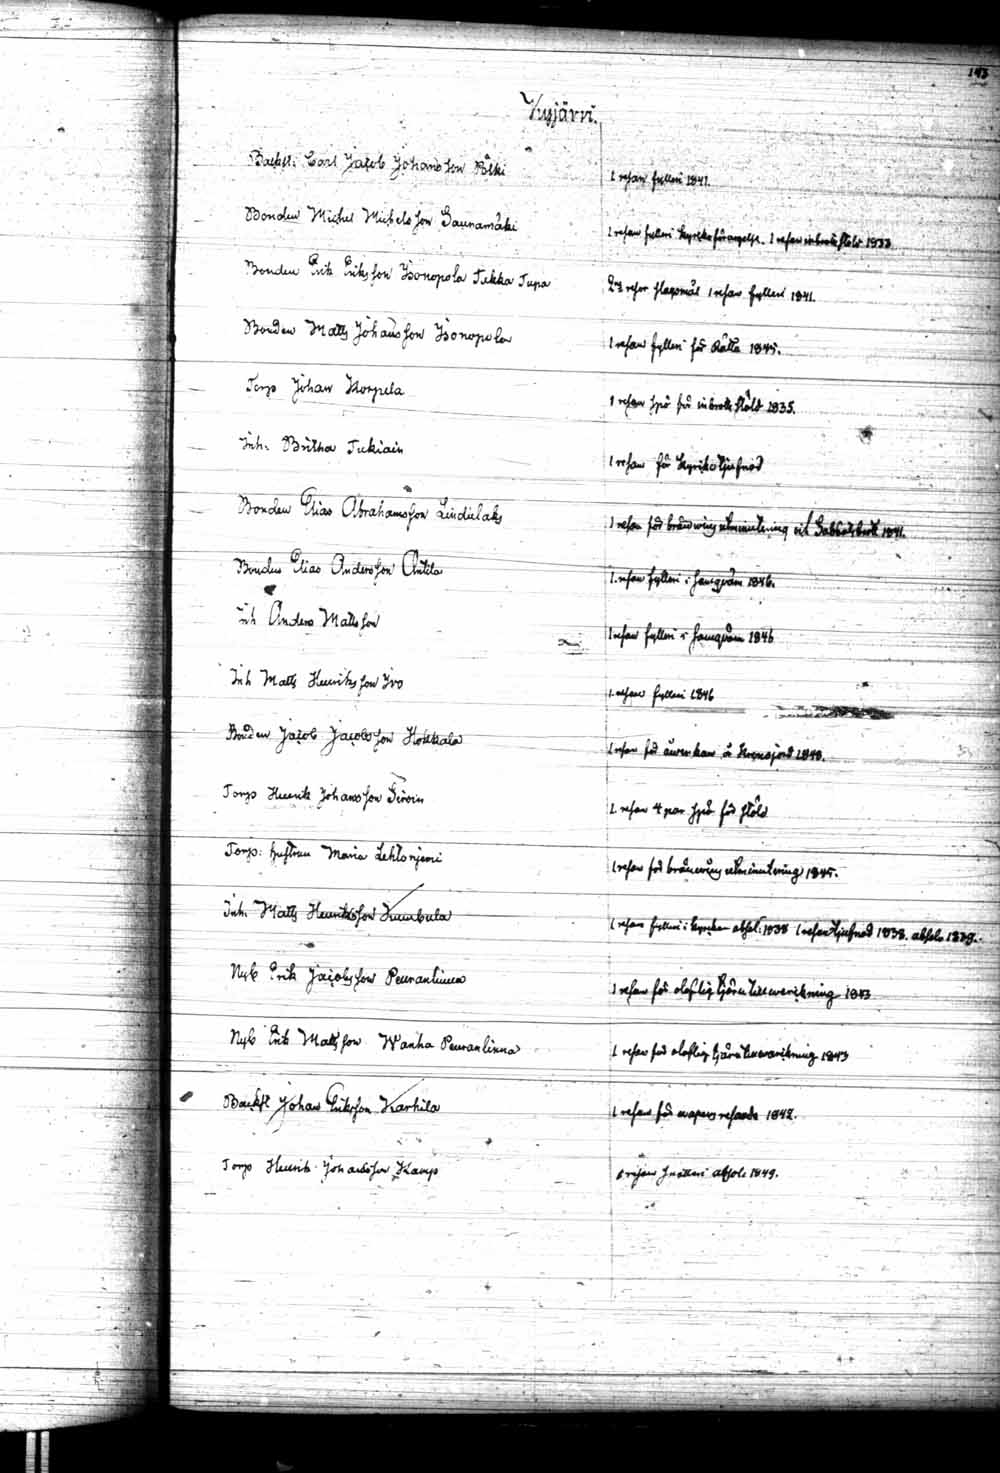 193
Ysojärvi.
Backst: Carl Jacob Johansson Pälki 1 resan fylleri 1841.
Bonden Michel Michelsson Saunamäki 1 resan fylleri 1 resan inbrott stöld 1833
Bonden Erik Eriksson Isonopola Tukka Tupa 2ne resor slagsmål 1 resan fylleri 1841.
Bonden Matts Johansson Isonopola 1 resan fylleri för Rätta 1845.
Torp Johan Korpela 1 resan spö för inbrott stöld 1835.
Inh: Britha Tukiain 1 resan för kyrkotjufnad
Bonden Elias Abrahamsson Lindulaks 1 resan för bränvins utminutering och Sabbatsbrott 1841.
Bonden Elias Andersson Antila 1 resan fylleri i 1846.
Inh Anders Mattsson 1 resan fylleri i 1846
Inh Matts Henriksson Ivo 1 resan fylleri 1846
Bonden Jacob Jacobsson Hokkala 1 resan för åverkan å 1848.
Torp Henrik Johansson Siroin 1 resan 4 par spö för stöld
Torp: hustrun Maria Lehtoniemi 1 resan för bränvins utminutering 1845.
Inh: Matts Henriksson Kumbula 1 resan fylleri i kyrkan absol: 1838 1 resan tjufnad 1838. absolv 1839.
Nyb Erik Jacobsson Peuranlinna 1 resan för oloflig tjäru tillverkning 1843
Nyb Erik Mattsson Wanha Peuranlinna 1 resan för oloflig tjäru tillverkning 1843
Backst Johan Eriksson Karhila 1 resan för 1842.
Torp Henrik Johansson Kamp 1 resan absolv 1849.